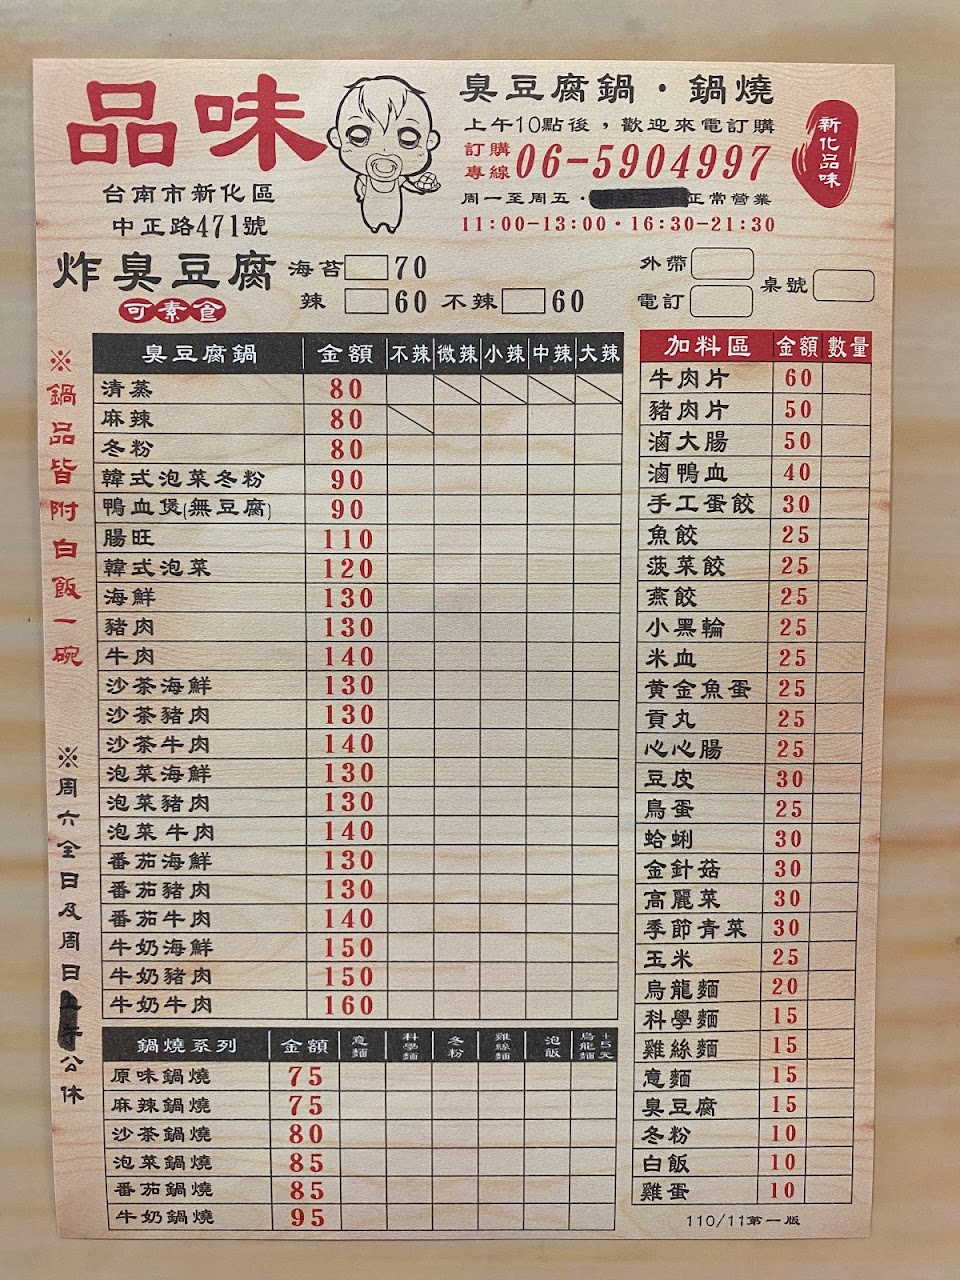 品味
台南市新化區
中正路471號
臭豆腐鍋·鍋燒
上午10點後，歡迎來電訂購
訂購專線 06-5904997
周一至周五· 正常營業
11:00-13:00·16:30-21:30
新化品味
炸臭豆腐 海苔 70
可素食 辣 60 不辣 60
外帶
電訂
桌號
※鍋品皆附白飯一碗
※周六全日及周日 公休
臭豆腐鍋 金額 不辣 微辣 小辣 中辣 大辣
清蒸 80
麻辣 80
冬粉 80
韓式泡菜冬粉 90
鴨血煲(無豆腐) 90
腸旺 110
韓式泡菜 120
海鮮 130
豬肉 130
牛肉 140
沙茶海鮮 130
沙茶豬肉 130
沙茶牛肉 140
泡菜海鮮 130
泡菜豬肉 130
泡菜牛肉 140
番茄海鮮 130
番茄豬肉 130
番茄牛肉 140
牛奶海鮮 150
牛奶豬肉 150
牛奶牛肉 160
鍋燒系列 金額 意麵 科學麵 冬粉 雞絲麵 泡飯 烏龍麵+5元
原味鍋燒 75
麻辣鍋燒 75
沙茶鍋燒 80
泡菜鍋燒 85
番茄鍋燒 85
牛奶鍋燒 95
加料區 金額 數量
牛肉片 60
豬肉片 50
滷大腸 50
滷鴨血 40
手工蛋餃 30
魚餃 25
菠菜餃 25
燕餃 25
小黑輪 25
米血 25
黃金魚蛋 25
貢丸 25
心心腸 25
豆皮 30
鳥蛋 25
蛤蜊 30
金針菇 30
高麗菜 30
季節青菜 30
玉米 25
烏龍麵 20
科學麵 15
雞絲麵 15
意麵 15
臭豆腐 15
冬粉 10
白飯 10
雞蛋 10
110/11第一版